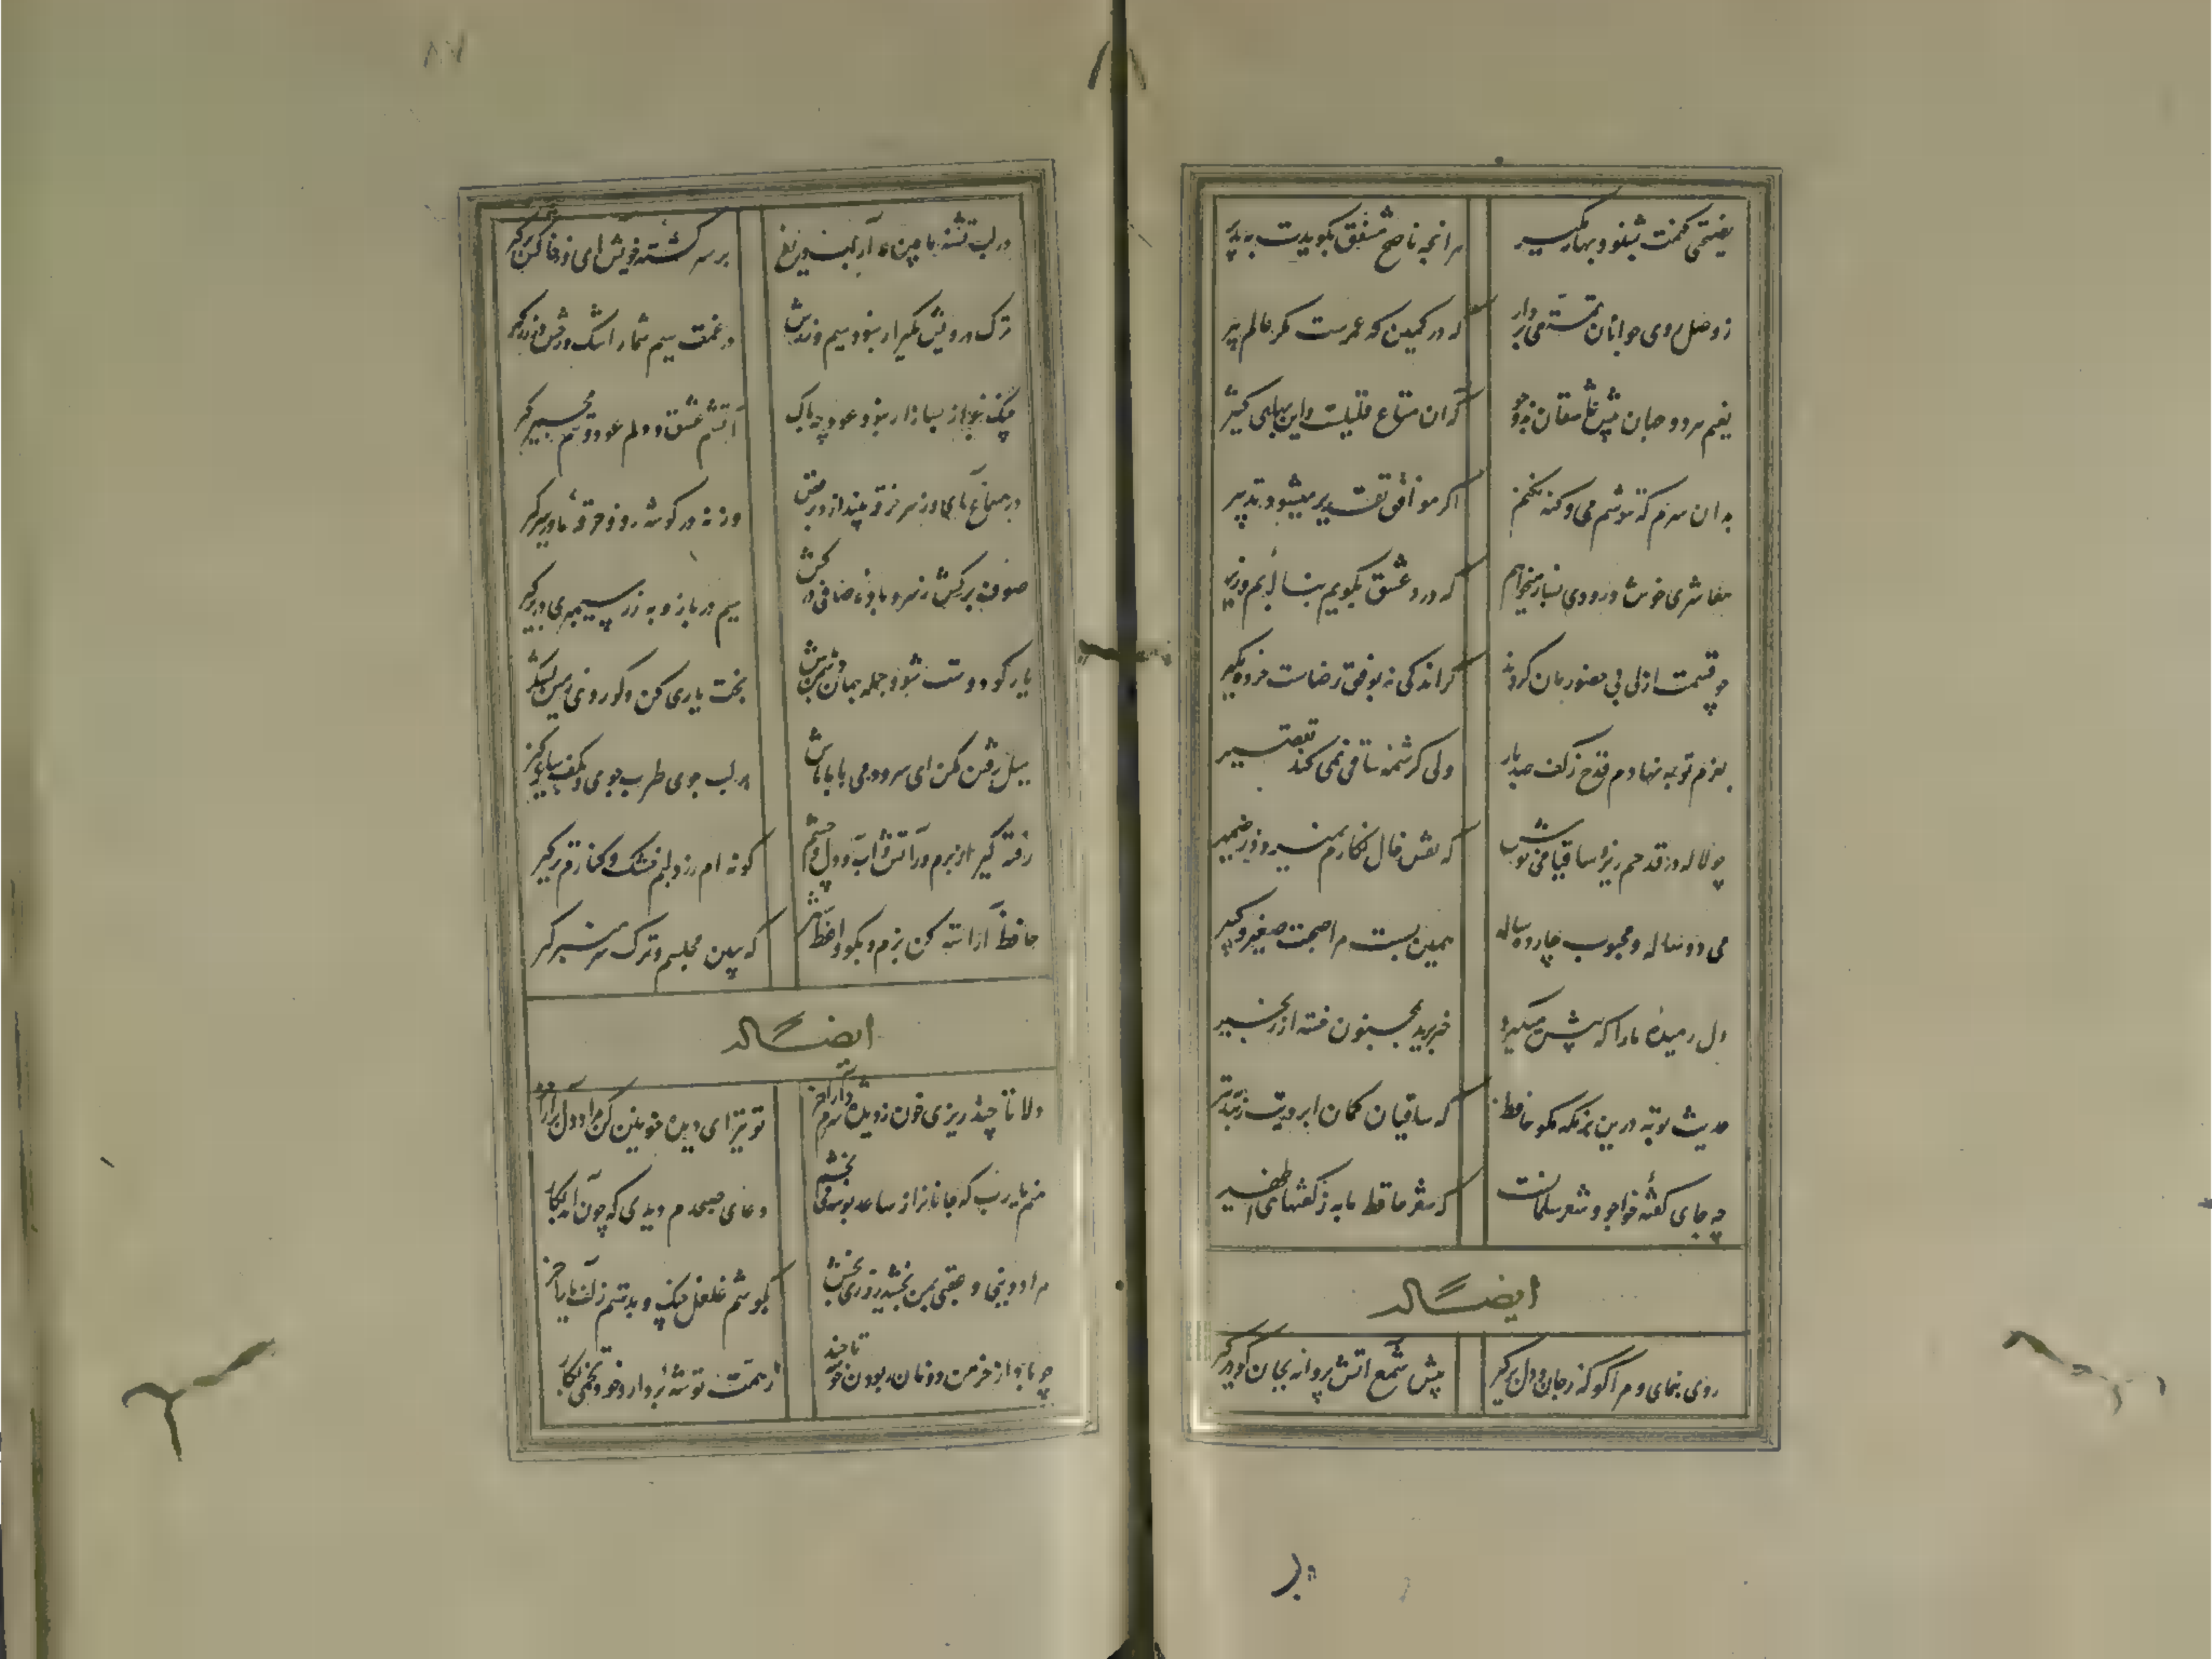 نصیحتی کنمت بشنو و بهانه مگیر
هر آنچه ناصح مشفق بگویدت بپذیر
ز وصل روی جوانان تمتعی بردار
که در کمین که عمرست مکر عالم پیر
نعیم هر دو جهان پیش عاشقان بدو جو
که آن متاع قلیلست و این بهای کثیر
بر آن سرم که ننوشم می و گنه نکنم
اگر موافق تقدیر میشود تدبیر
معاشری خوش و رودی بساز میخواهم
که درد عشق بگویم بنالهٔ بم و زیر
چو قسمت ازلی بی حضور ما کردند
گر اندکی نه بوفق رضاست خرده مگیر
بعزم توبه نهادم قدح ز کف صد بار
ولی کرشمه ساقی نمی کند تقصیر
چو لاله در قدحم ریز ساقیا می
که نقش خال نگارم نمیرود ز ضمیر
می دو ساله و محبوب چارده ساله
همین بست مرا صحبت صغیر و کبیر
دل رمیدهٔ ما را که پیش میگیرد
خبر برید بمجنون خسته از زنجیر
حدیث توبه درین بزمگه مگو حافظ
که ساقیان کمان ابرویت زنند بتیر
چه جای گفتهٔ خواجو و شعر سلمانست
که شعر حافظ ما به ز گفتهای ظهیر
ایضاً له
روی بنمای و مرا گو که ز جان دل برگیر
پیش شمع آتش پروانه بجان گو درگیر
در لب تشنهٔ ما بین و مدار آب دریغ
بر سر کشتهٔ خویش آی و ز خاکش برگیر
ترک درویش مگیر ار نبود سیم و زرش
در غمت سیم شمار اشک و رخش را زر گیر
چنگ بنواز و بساز ار نبود عود چه باک
آتشم عشق و دلم عود و تنم مجمر گیر
در سماع آی و ز سر خرقه بینداز و برقص
ورنه در گوشه رو و خرقهٔ ما در سر گیر
صوف برکش ز سر و بادهٔ صافی درکش
سیم در باز و به زر سیمبری در بر گیر
یار گو دوست شو و جمله جهان دشمن باش
بخت یاری کن و گو روی زمین لشکر گیر
میل رفتن مکن ای سرو دمی با ما باش
بر لب جوی طرب جوی و بکف ساغر گیر
رفته گیر از برم و ز آتش و آب دل و چشم
گونه ام زرد و لبم خشک و کنارم تر گیر
حافظ آراسته کن بزم و بگو واعظ را
که ببین مجلسم و ترک سر منبر گیر
ایضاً له
دلا تا چند ریزی خون ز دیده شرم دار آخر
تو نیز ای دیده خوابی کن مراد دل برآر آخر
منم یا رب که جانان را ز ساعد بوسه می
دعای صبحدم دیدی که چون آمد بکار
مراد دنیی و عقبی بمن بخشید روزی بخش
بگوشم غلغل چنگ و بدستم زلف یار آخر
چو باد از خرمن دونان ربودن خوشه تا چند
ز همت توشهٔ بردار و خود تخمی بکار